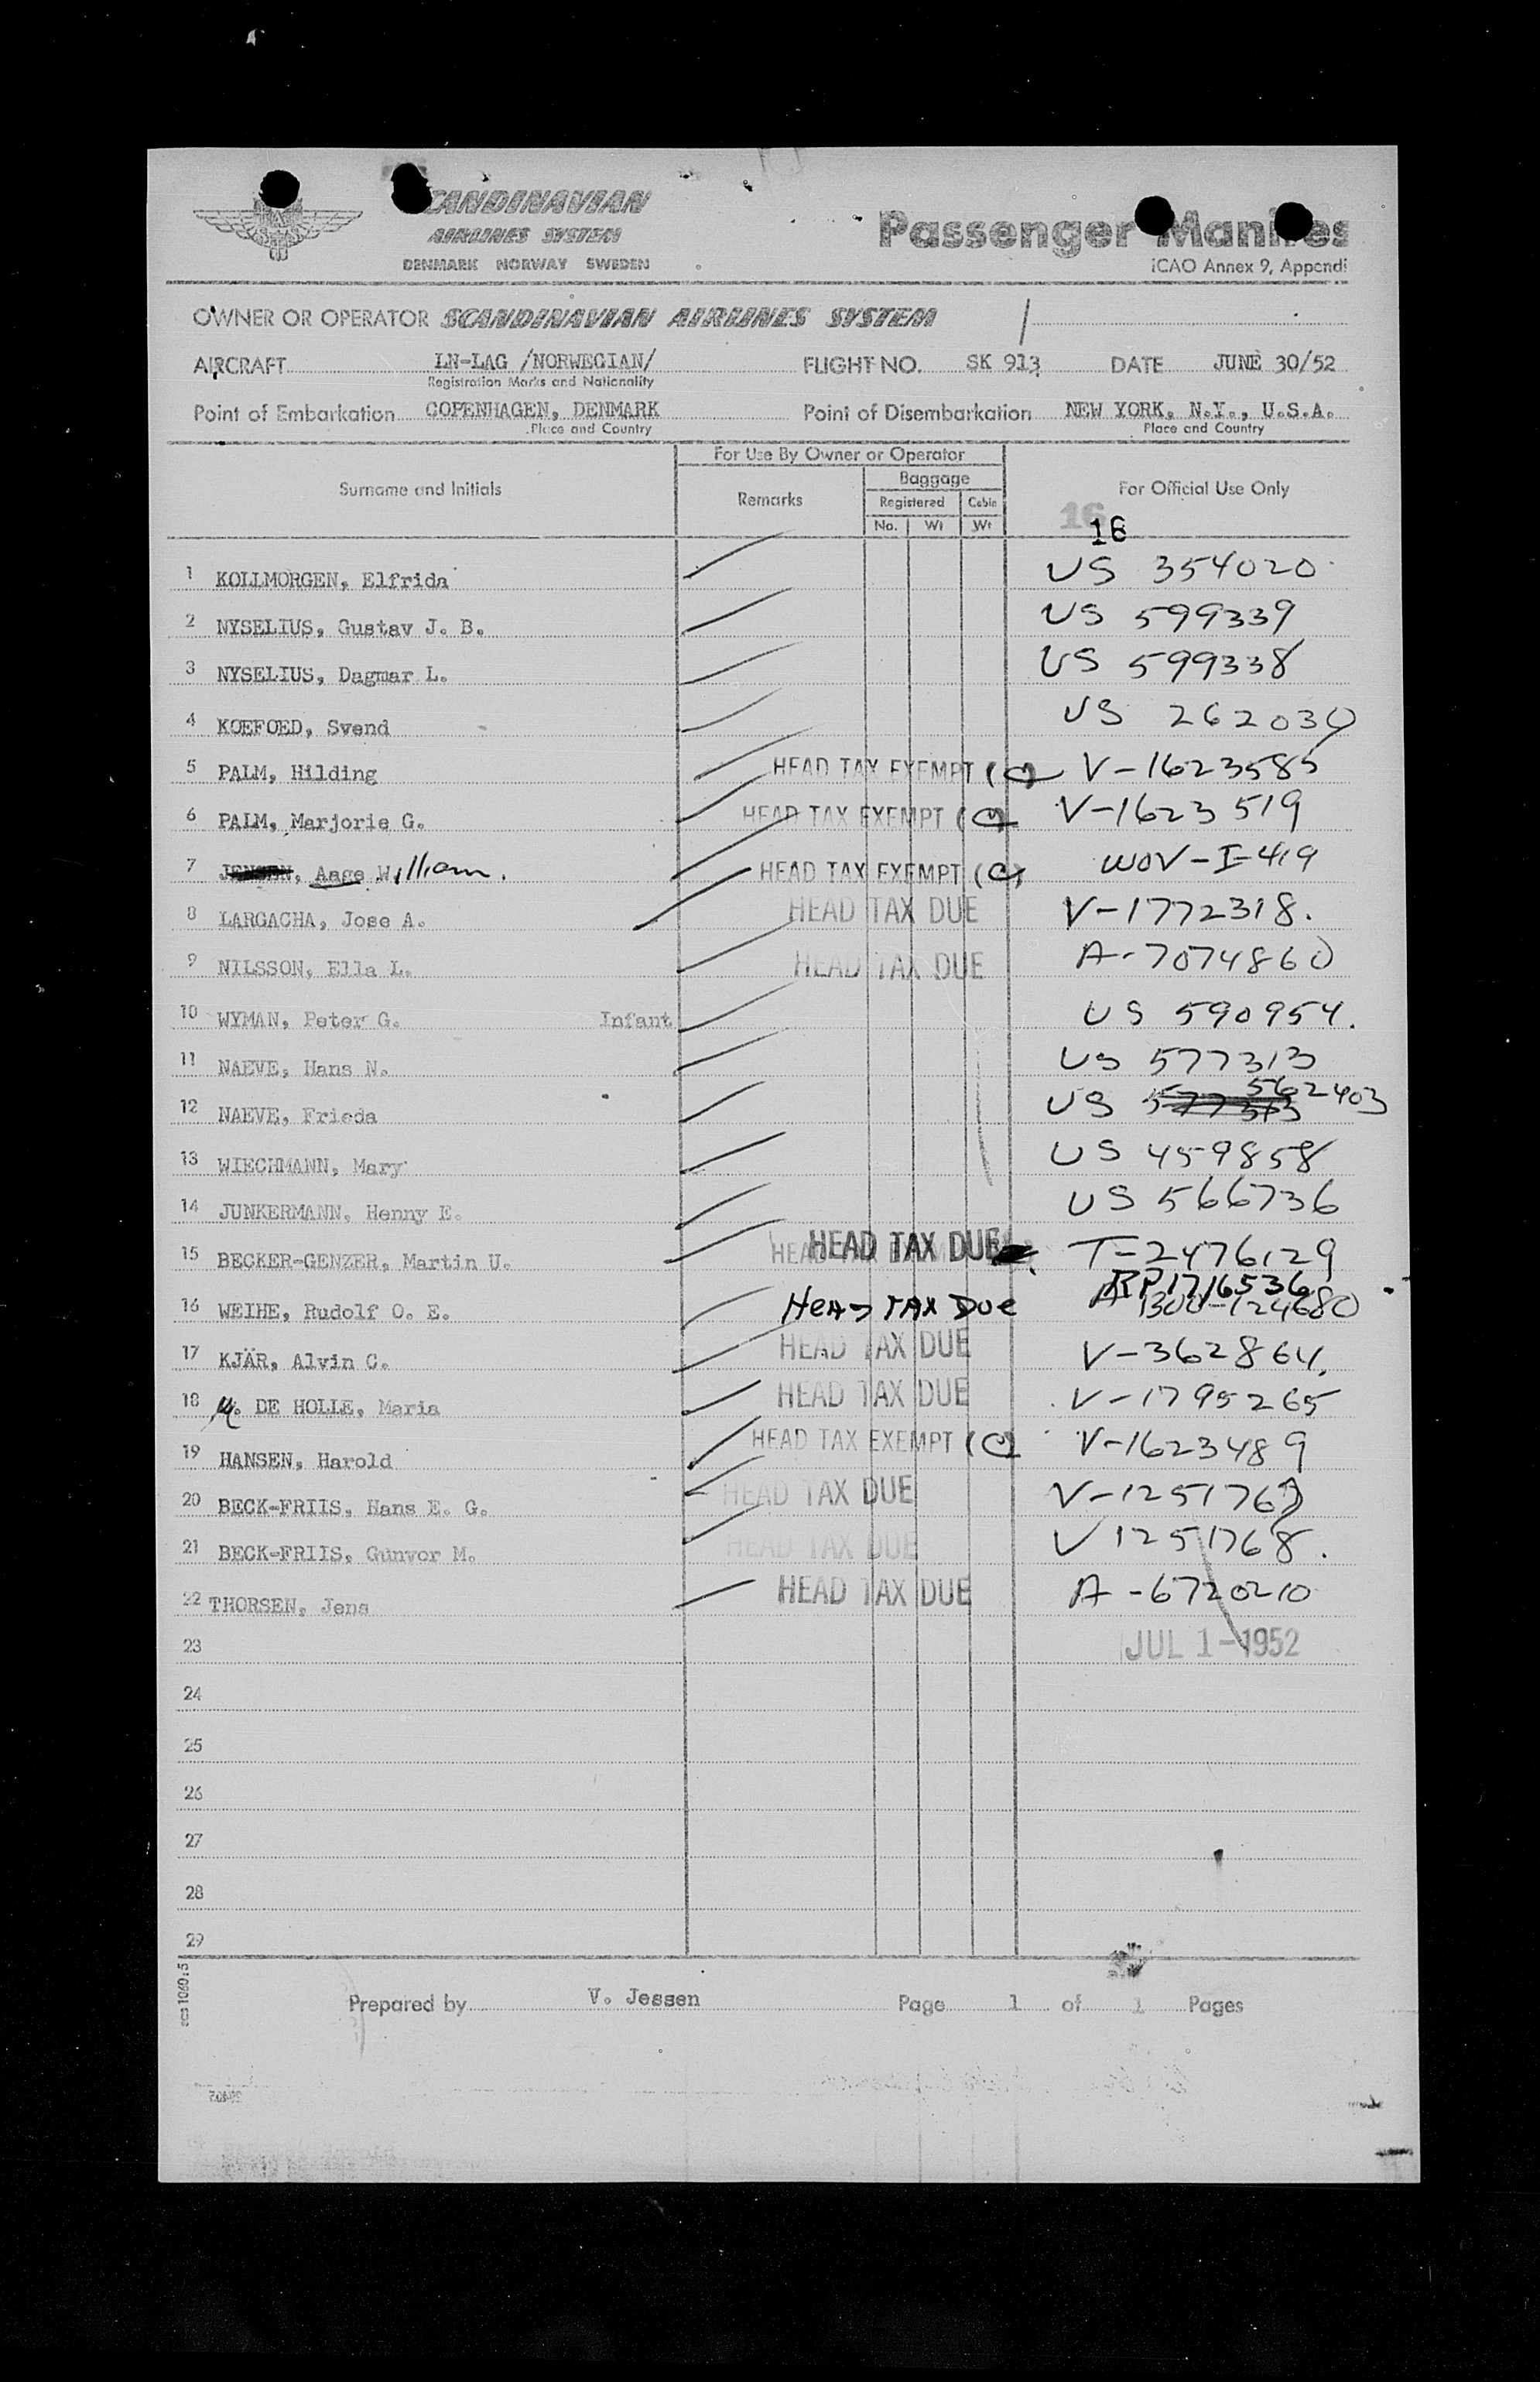 SCANDINAVIAN
AIRLINES SYSTEM
DENMARK NORWAY SWEDEN
Passenger Manifes
ICAO Annex 9, Appendi
OWNER OR OPERATOR SCANDINAVIAN AIRLINES SYSTEM
AIRCRAFT LN-LAG /NORWEGIAN/ FLIGHT NO. SK 913 DATE JUNE 30/52
Registration Marks and Nationality
Point of Embarkation COPENHAGEN, DENMARK Point of Disembarkation NEW YORK, N.Y., U.S.A.
Place and Country Place and Country
For Use By Owner or Operator
Surname and Initials Remarks Baggage For Official Use Only
Registered Cabin
No. Wt Wt
16
16
1 KOLLMORGEN, Elfrida US 354020
2 NYSELIUS, Gustav J. B. US 599339
3 NYSELIUS, Dagmar L. US 599338
4 KOEFOED, Svend US 262030
5 PALM, Hilding HEAD TAX EXEMPT (C) V-1623585
6 PALM, Marjorie G. HEAD TAX EXEMPT (C) V-1623519
7 JENSEN, Aage William. HEAD TAX EXEMPT (C) WOV-I-419
8 LARGACHA, Jose A. HEAD TAX DUE V-1772318.
9 NILSSON, Ella L. HEAD TAX DUE A-7074860
10 WYMAN, Peter G. Infant US 590954.
11 NAEVE, Hans N. US 577313
12 NAEVE, Frieda US 577313 562403
13 WIECHMANN, Mary US 459858
14 JUNKERMANN, Henny E. US 566736
15 BECKER-GENZER, Martin U. HEAD TAX DUE T-2476129
RP1716536
16 WEIHE, Rudolf O. E. HEAD TAX DUE 1300-124680
17 KJÄR, Alvin C. HEAD TAX DUE V-362864.
18 DE HOLLE, Maria HEAD TAX DUE V-1795265
19 HANSEN, Harold HEAD TAX EXEMPT (C) V-1623489
20 BECK-FRIIS, Hans E. G. HEAD TAX DUE V-1251767
21 BECK-FRIIS, Gunvor M. HEAD TAX DUE V1251768.
22 THORSEN, Jens HEAD TAX DUE A-6720210
23 JUL 1-1952
24
25
26
27
28
29
Prepared by V. Jessen Page 1 of 1 Pages